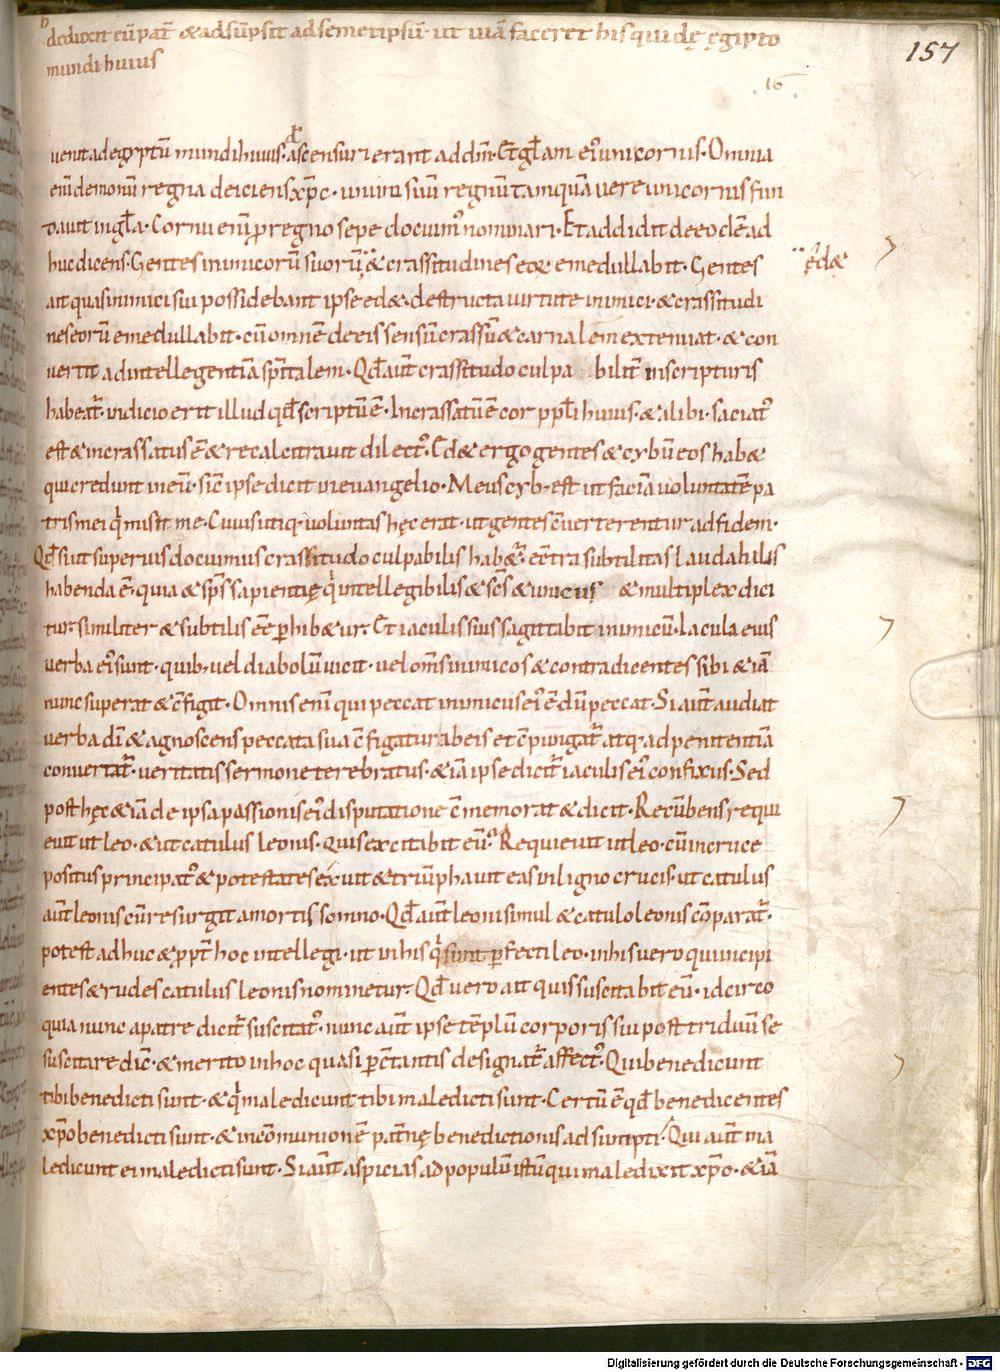 h
deduxit eū pat̄ & adsūpsit ad semetipsū· ut uiā faceret his qui dę ęgipto
mundi huius
157
·16·
uenit ad egyptū mundi huius· ascensuri erant ad dm̄· Et gl̄am ei' unicornis· Omnia
enī demonū regna deiciens xp̄c· unum suū regnū tamquā uere unicornis fun
dauit in gl̄a· Cornu enī p regno sepe docuim' nominari· Et addidit de eo clē ad
huc dicens· Gentes inimicorū suorū & crassitudines eoꝝ emedullabit· Gentes
ęd&
ait quas inimici sui possidebant ipse ed&· destructa uirtute inimici· & crassitudi
nes eorū emedullabit· cū omnē de eis sensū crassū & carnalem extenuat· & con
uertit ad intellegentiā spīitalem· Qd̄ aut̄ crassitudo culpa bilit̄ in scripturis
habeat̄· indicio erit illud qd̄ scriptū ē· Incrassatū ē cor ppl̄i huius· & alibi· saciat'
est & incrassatus ē & recalcitrauit dilect'· Ed& ergo gentes & cybū eos hab&
qui credunt in eū· sic̄ ipse dicit in euangelio· Meus cyb; est ut faciā uoluntatē pa
tris mei qͥ misit me· Cuius utiq· uoluntas hęc erat· ut gentes cōuerterentur ad fidem·
Qd̄ sicut superius docuimus crassitudo culpabilis hab&ur̄· ec̄ntra subtilitas laudabilis
habenda ē· quia & sp̄s sapientię qͥ intellegibilis & sc̄s & unicus & multiplex dici
tur· similiter & subtilis eē phib&ur· Et iaculis suis sagittabit inimicū· Iacula eius
uerba ei' sunt· quib; uel diabolū uicit· uel om̄s inimicos & contradicentes sibi & iā
nunc superat & c̄figit· Omnis enī qui peccat inimicus ei' ē dū peccat· Si aut̄ audiat
uerba dī & agnoscens peccata sua c̄figatur ab eis et c̄pungat̄ atq· ad penitentiā
conuertat̄· ueritatis sermone terebratus· & iā ipse dicit̄ iaculis ei' confixus· Sed
post hęc & iā de ipsa passionis ei' disputatione c̄memorat & dicit· Recūbens requi
euit ut leo· & ut catulus leonis· quis excitabit eū· Requieuit ut leo· cū in cruce
positus principat' & potestates exuit & triūphauit eas in ligno crucis· ut catulus
aut̄ leonis cū resurgit a mortis somno· Qd̄ aut̄ leoni simul & catulo leonis cōparat̄·
potest adhuc & ppt̄ hoc intellegi· ut in his qͥ sunt pfecti leo· in his uero qui incipi
entes & rudes catulus leonis nominetur· Qd̄ uero ait quis suscitabit eū· idcirco
quia nunc a patre dicit̄ suscitat'· nunc aut̄ ipse tēplū corporis sui post triduū se
suscitare dic̄· & merito in hoc quasi pc̄tantis designat̄ affect'· Qui benedicunt
tibi benedicti sunt· & qͥ maledicunt tibi maledicti sunt· Certū ē qd̄ benedicentes
xp̄o benedicti sunt· & in cōmunionē pat̄nę benedictionis adsumpti· Qui aut̄ ma
ledicunt ei maledicti sunt· Si aut̄ aspicias ad populū istū qui maledixit xp̄o· & iā
Digitalisierung gefördert durch die Deutsche Forschungsgemeinschaft - DFG